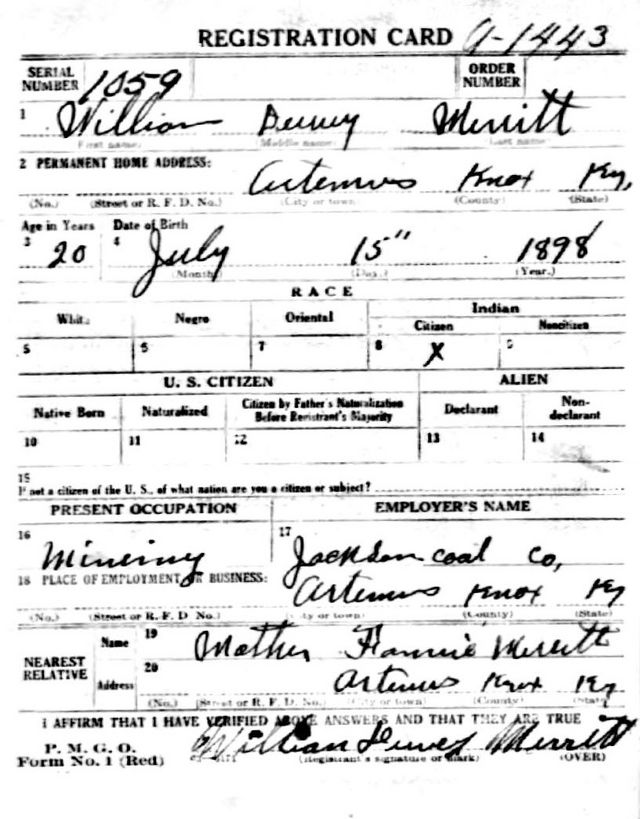 REGISTRATION CARD A-1443
SERIAL NUMBER 1059 ORDER NUMBER
1 William Dewey Merritt
(First name) (Middle name) (Last name)
2 PERMANENT HOME ADDRESS: Artemus Knox Ky.
(No.) (Street or R. F. D. No.) (City or town) (County) (State)
Age in Years Date of Birth
3 20 4 July 15" 1898
(Month) (Day.) (Year.)
RACE
White Negro Oriental Indian
Citizen Noncitizen
5 6 7 8 X 9
U. S. CITIZEN ALIEN
Native Born Naturalized Citizen by Father's Naturalization Before Registrant's Majority Declarant Non-declarant
10 11 12 13 14
15
If not a citizen of the U. S., of what nation are you a citizen or subject?
PRESENT OCCUPATION EMPLOYER'S NAME
16 Mineiny 17 Jackson coal Co,
18 PLACE OF EMPLOYMENT OR BUSINESS: Artemus Knox Ky
(No.) (Street or R. F. D No.) (City or town) (County) (State)
NEAREST RELATIVE Name 19 Mother Fannie Merritt
Address 20 Artemus Knox Ky
(No.) (Street or R. F. D. No.) (City or town) (County) (State)
I AFFIRM THAT I HAVE VERIFIED ABOVE ANSWERS AND THAT THEY ARE TRUE
P. M. G. O.
Form No. 1 (Red) William Dewey Merritt
(Registrant's signature or mark) (OVER)